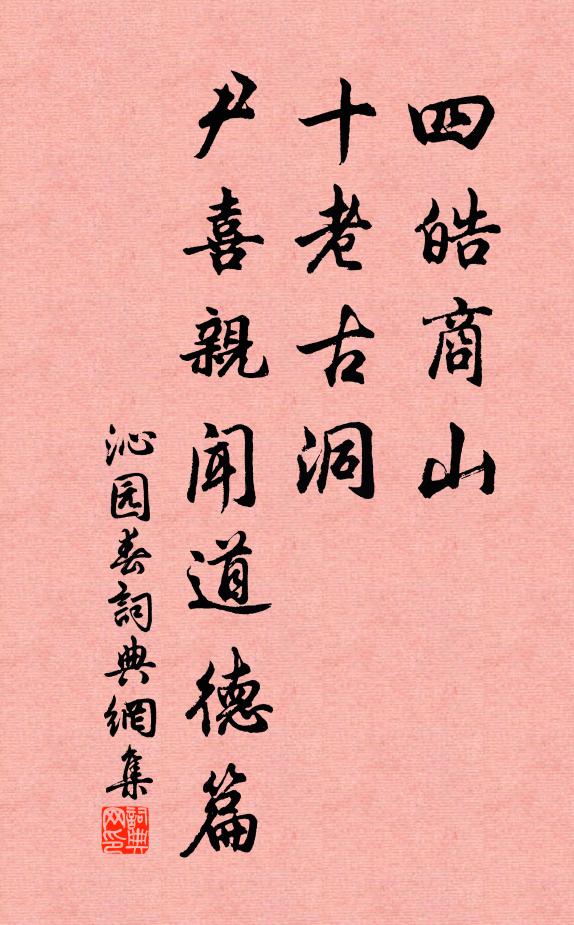 四皓商山
十老古洞
尹喜親闻道德篇
沁园春詞典網集
詞典网印